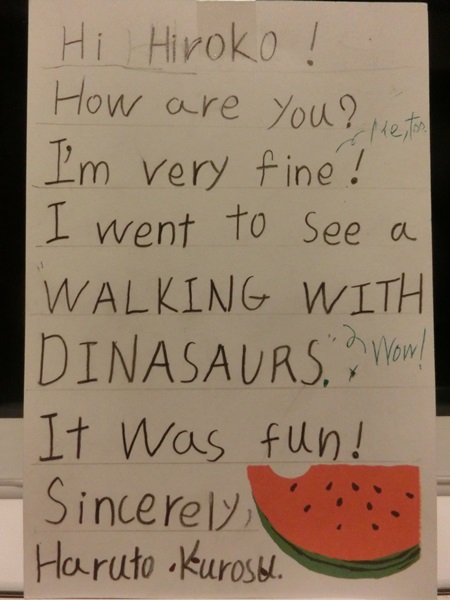 Hi Hiroko !
How are you?
Me, too.
I'm very fine !
I went to see a
"WALKING WITH
DINASAURS."
Wow!
It was fun!
Sincerely,
Haruto .Kurosu.